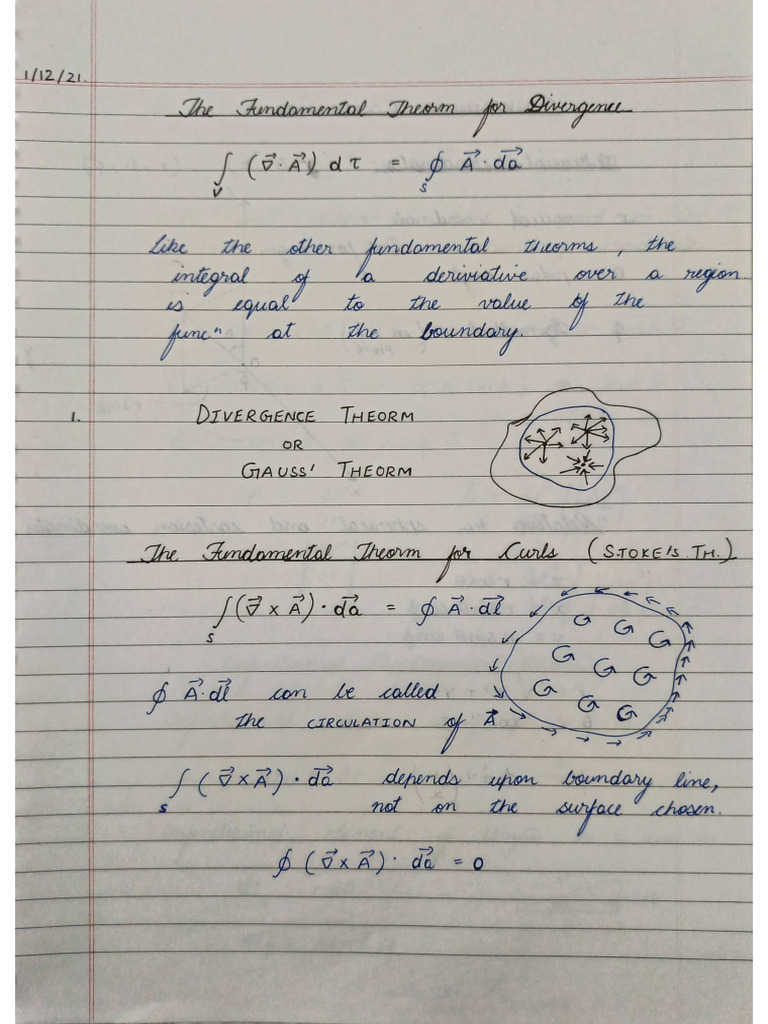 1/12/21.
The Fundamental Theorm for Divergence
∫_V (∇⃗ · A⃗) dτ = ∮_S A⃗ · da⃗
Like the other fundamental theorms, the
integral of a deriviative over a region
is equal to the value of the
funcⁿ at the boundary.
1. DIVERGENCE THEORM
OR
GAUSS' THEORM
The Fundamental Theorm for Curls (STOKE'S TH.)
∫_S (∇⃗ × A⃗) · da⃗ = ∮ A⃗ · dl⃗
∮ A⃗ · dl⃗ can be called
the CIRCULATION of A⃗
∫_S (∇⃗ × A⃗) · da⃗ depends upon boundary line,
not on the surface chosen.
∮ (∇⃗ × A⃗) · da⃗ = 0